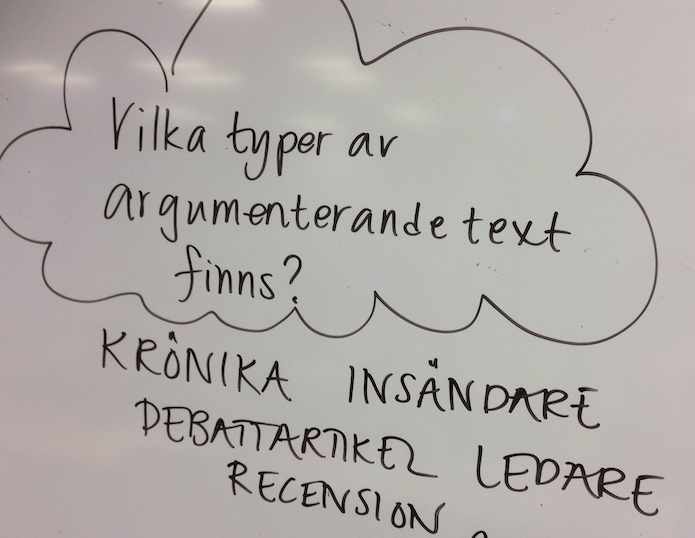 Vilka typer av
argumenterande text
finns?
KRÖNIKA INSÄNDARE
DEBATTARTIKEL LEDARE
RECENSION